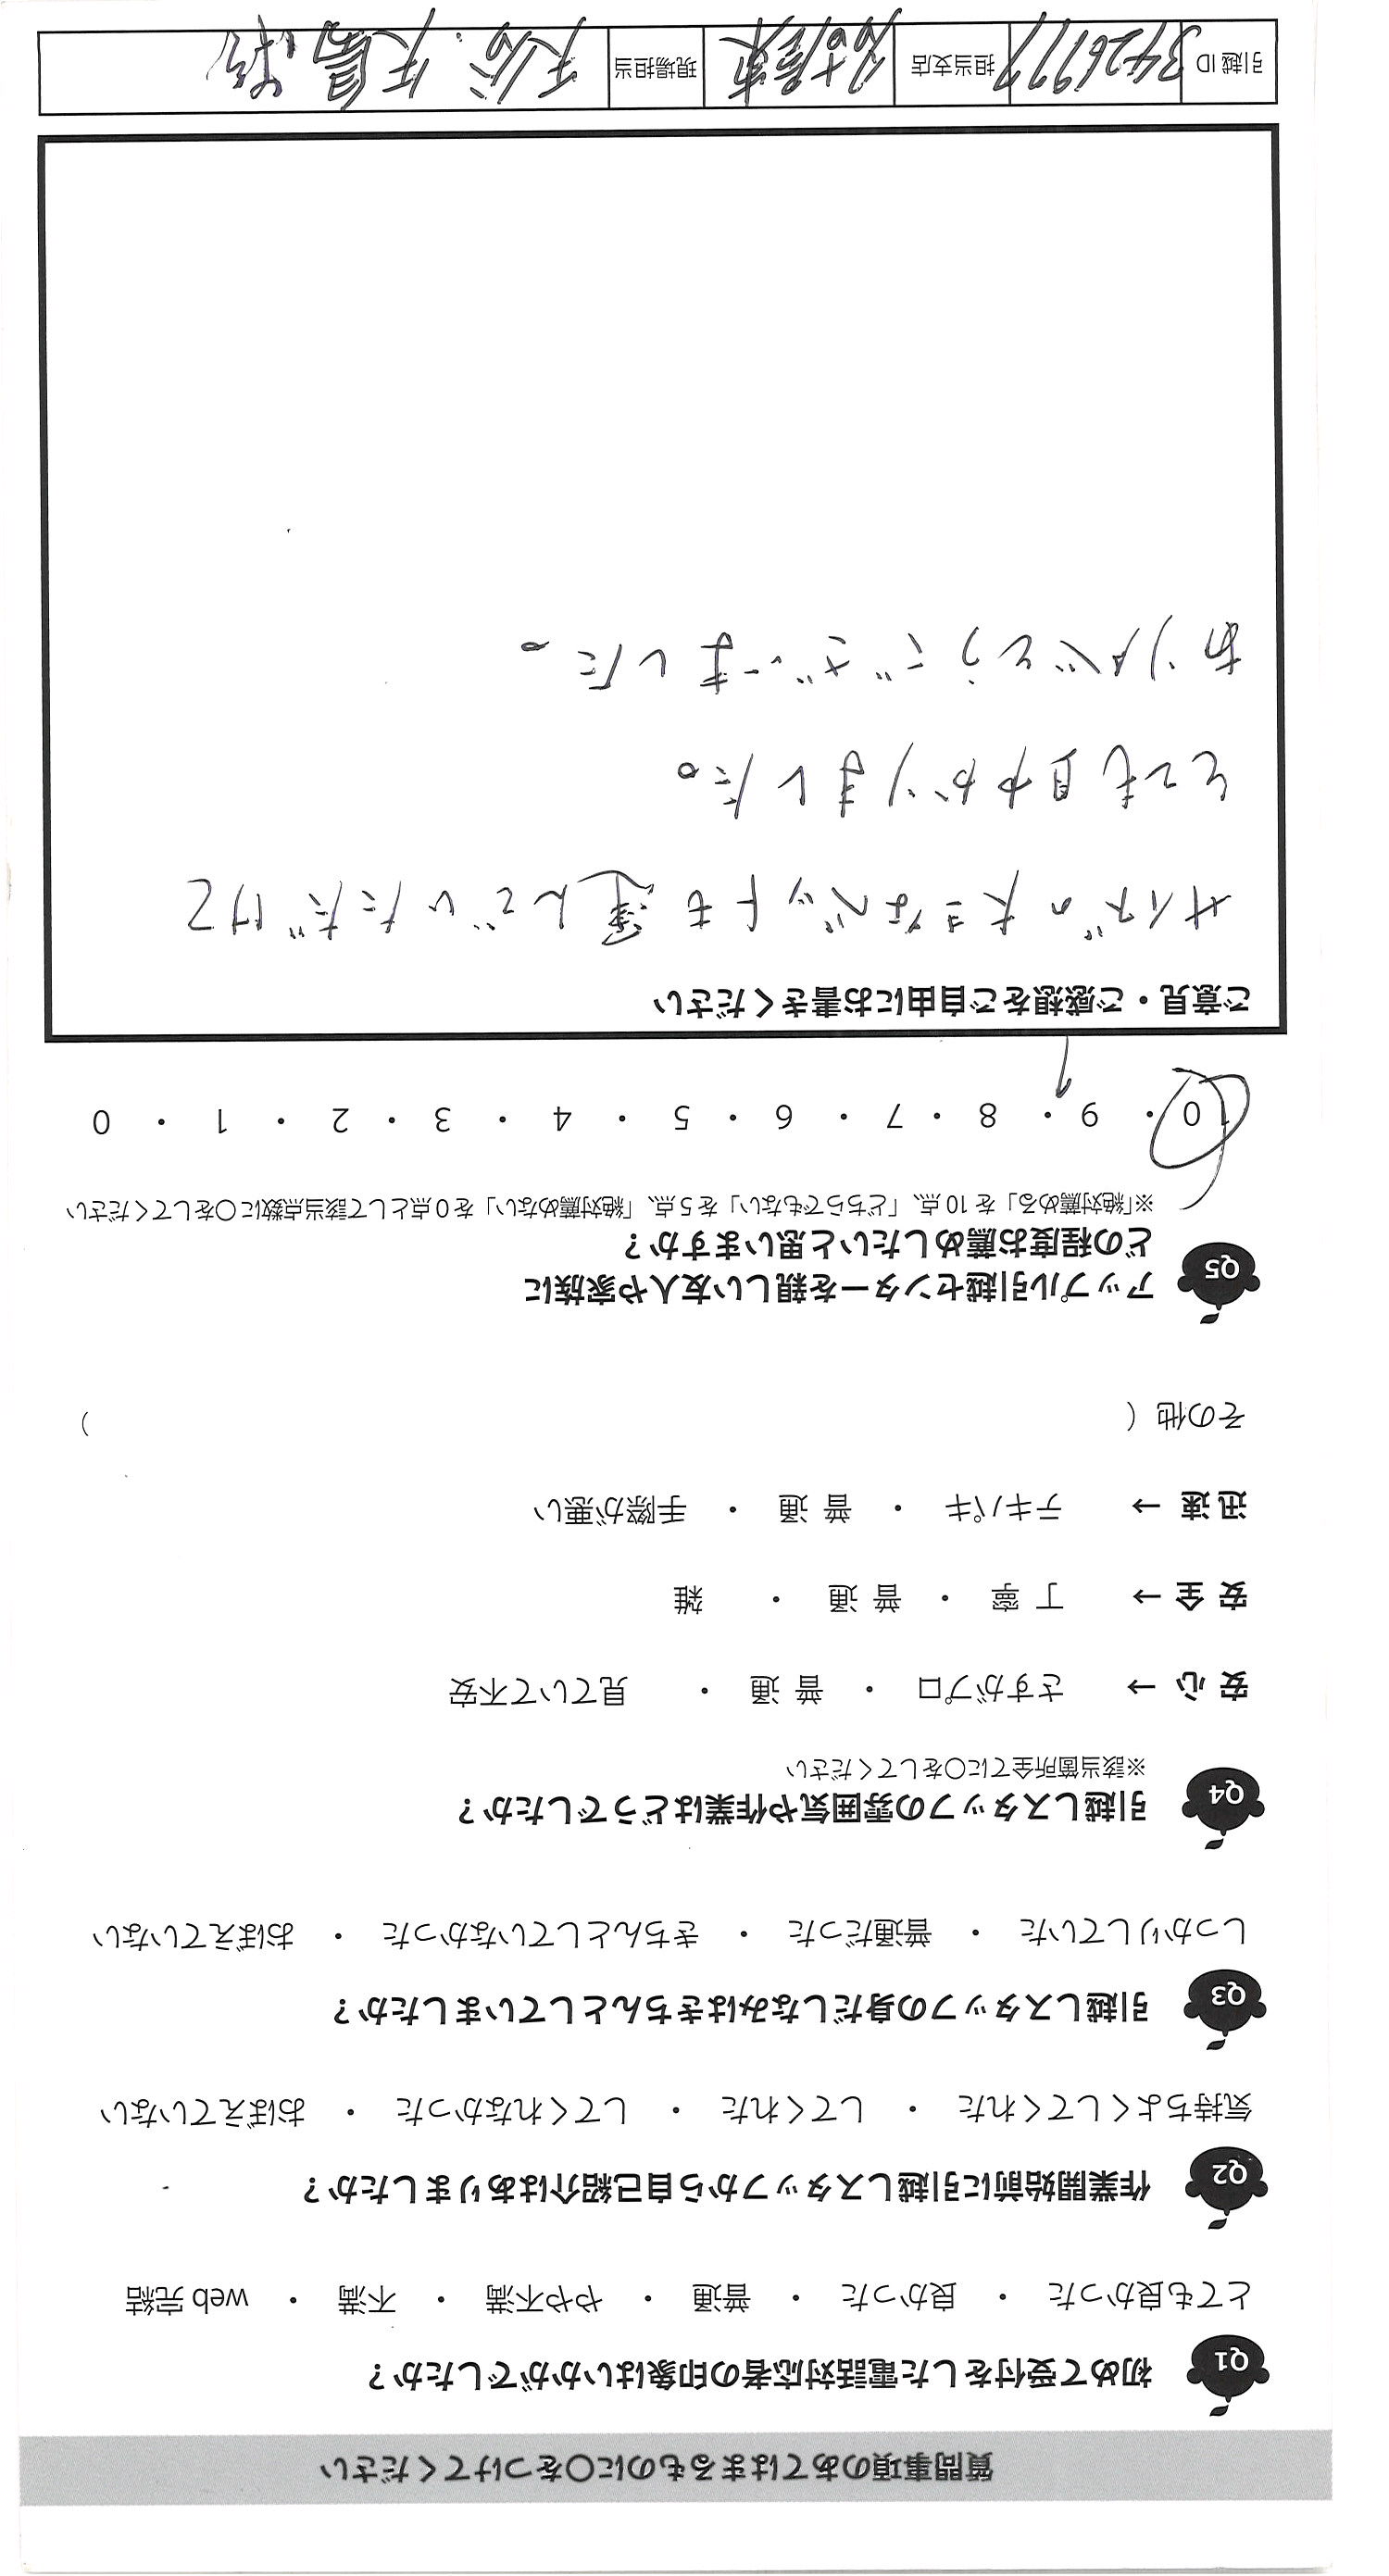 質問事項のあてはまるものに〇をつけてください
Q1 初めて受付をした電話対応者の印象はいかがでしたか？
とても良かった ・ 良かった ・ 普通 ・ やや不満 ・ 不満 ・ web 完結
Q2 作業開始前に引越しスタッフから自己紹介はありましたか？
気持ちよくしてくれた ・ してくれた ・ してくれなかった ・ おぼえていない
Q3 引越しスタッフの身だしなみはきちんとしていましたか？
しっかりしていた ・ 普通だった ・ きちんとしていなかった ・ おぼえていない
Q4 引越しスタッフの雰囲気や作業はどうでしたか？
※該当箇所全てに〇をしてください
安 心 → さすがプロ ・ 普 通 ・ 見ていて不安
安 全 → 丁 寧 ・ 普 通 ・ 雑
迅 速 → テキパキ ・ 普 通 ・ 手際が悪い
その他（ ）
Q5 アップル引越センターを親しい友人や家族に
どの程度お薦めしたいと思いますか？
※「絶対薦める」を 10 点、「どちらでもない」を 5 点、「絶対薦めない」を 0 点として該当点数に〇をしてください
10 ・ 9 ・ 8 ・ 7 ・ 6 ・ 5 ・ 4 ・ 3 ・ 2 ・ 1 ・ 0
ご意見・ご感想をご自由にお書きください
サイズの大きなベットも運んでいただけて
とても助かりました。
ありがとうございました。
引越 ID 3426977 担当支店 現場担当